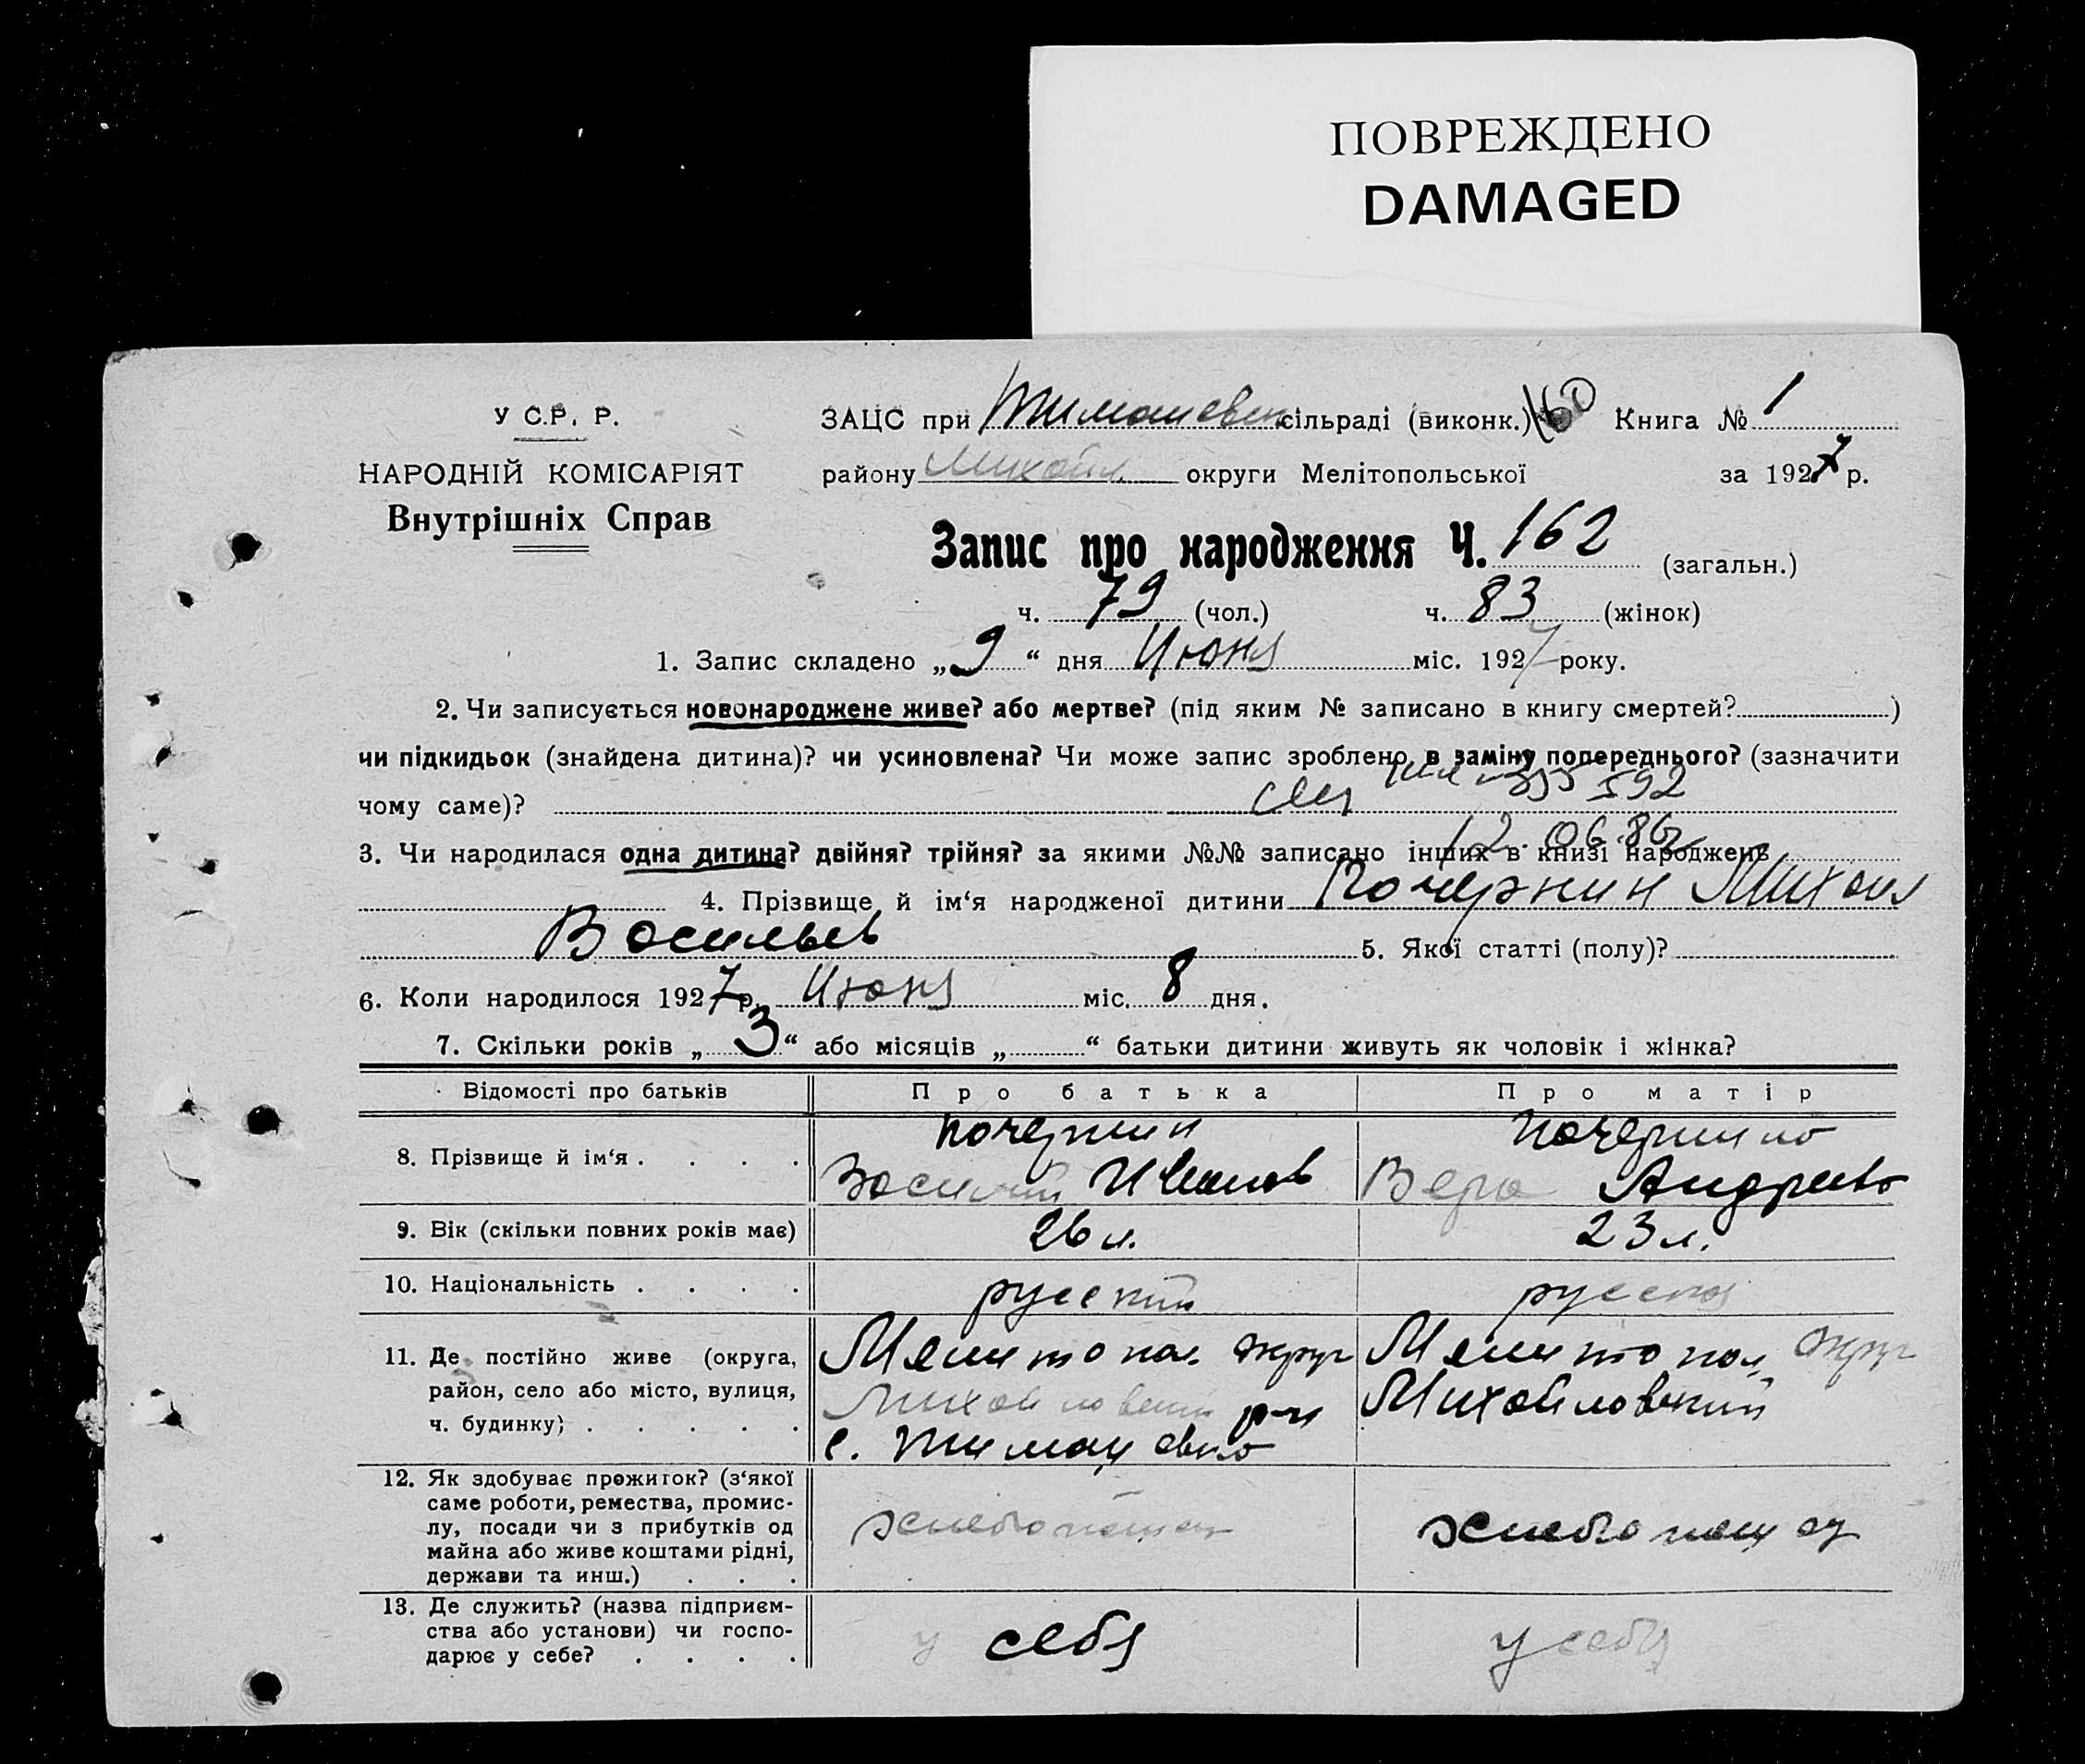 ПОВРЕЖДЕНО
DAMAGED
У С.Р. Р.
НАРОДНІЙ КОМІСАРІЯТ
Внутрішніх Справ
ЗАЦС при Тимашевск сільраді (виконк.) 160 Книга № 1
району Михайл. округи Мелітопольської за 1927 р.
Запис про народження Ч. 162 (загальн.)
ч. 79 (чол.) ч. 83 (жінок)
1. Запис складено „9“ дня Июня міс. 1927 року.
2. Чи записується новонароджене живе? або мертве? (під яким № записано в книгу смертей? )
чи підкидьок (знайдена дитина)? чи усиновлена? Чи може запис зроблено в заміну попереднього? (зазначити
чому саме)? 592
12.06.86г
3. Чи народилася одна дитина? двійня? трійня? за якими №№ записано інших в книзі народжень
4. Прізвище й ім‘я народженої дитини Почернин Михаил
Васильев 5. Якої статті (полу)?
6. Коли народилося 1927 р. Июня міс. 8 дня.
7. Скільки років „3“ або місяців „ “ батьки дитини живуть як чоловік і жінка?
Відомості про батьків Про батька Про матір
8. Прізвище й ім‘я . . . . Почернин Василий Иванов Почернина Вера Андреева
9. Вік (скільки повних років має) 26 л. 23 л.
10. Національність . . . . русский русская
11. Де постійно живе (округа, Мелитопол. округ Мелитопол. округ
район, село або місто, вулиця, Михайловский р-н Михайловский
ч. будинку) . . . . . с. Тимашевка
12. Як здобуває прожиток? (з‘якої
саме роботи, ремества, промис-
лу, посади чи з прибутків од хлебопашец хлебопашец
майна або живе коштами рідні,
держави та инш.) . . .
13. Де служить? (назва підприєм-
ства або установи) чи госпо- у себя у себя
дарює у себе? . . . .